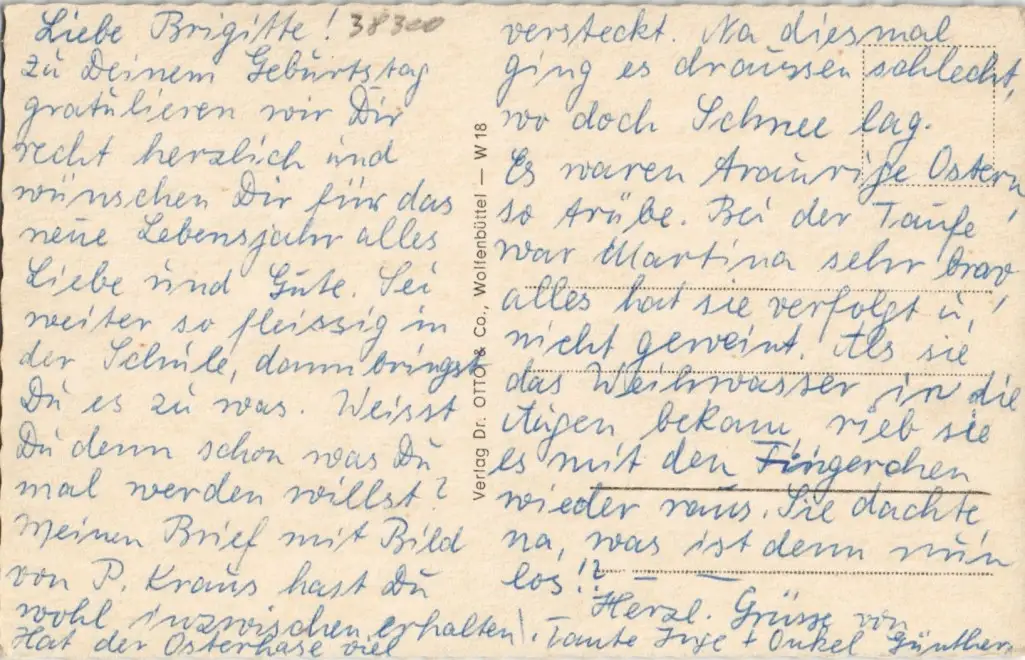 Liebe Brigitte! 38300
zu Deinem Geburtstag
gratulieren wir Dir
recht herzlich und
wünschen Dir für das
neue Lebensjahr alles
Liebe und Gute. Sei
weiter so fleissig in
der Schule, dann bringst
Du es zu was. Weisst
Du denn schon was Du
mal werden willst?
Meinen Brief mit Bild
von P. Kraus hast Du
wohl inzwischen erhalten!
Hat der Osterhase viel
Verlag Dr. OTTO & Co., Wolfenbüttel — W 18
versteckt. Na diesmal
ging es draussen schlecht,
wo doch Schnee lag.
Es waren traurige Ostern,
so trübe. Bei der Taufe
war Martina sehr brav,
alles hat sie verfolgt u.
nicht geweint. Als sie
das Weihwasser in die
Augen bekam, rieb sie
es mit den Fingerchen
wieder raus. Sie dachte
na, was ist denn nun
los!?
Herzl. Grüsse von
Tante Inge + Onkel Günther.